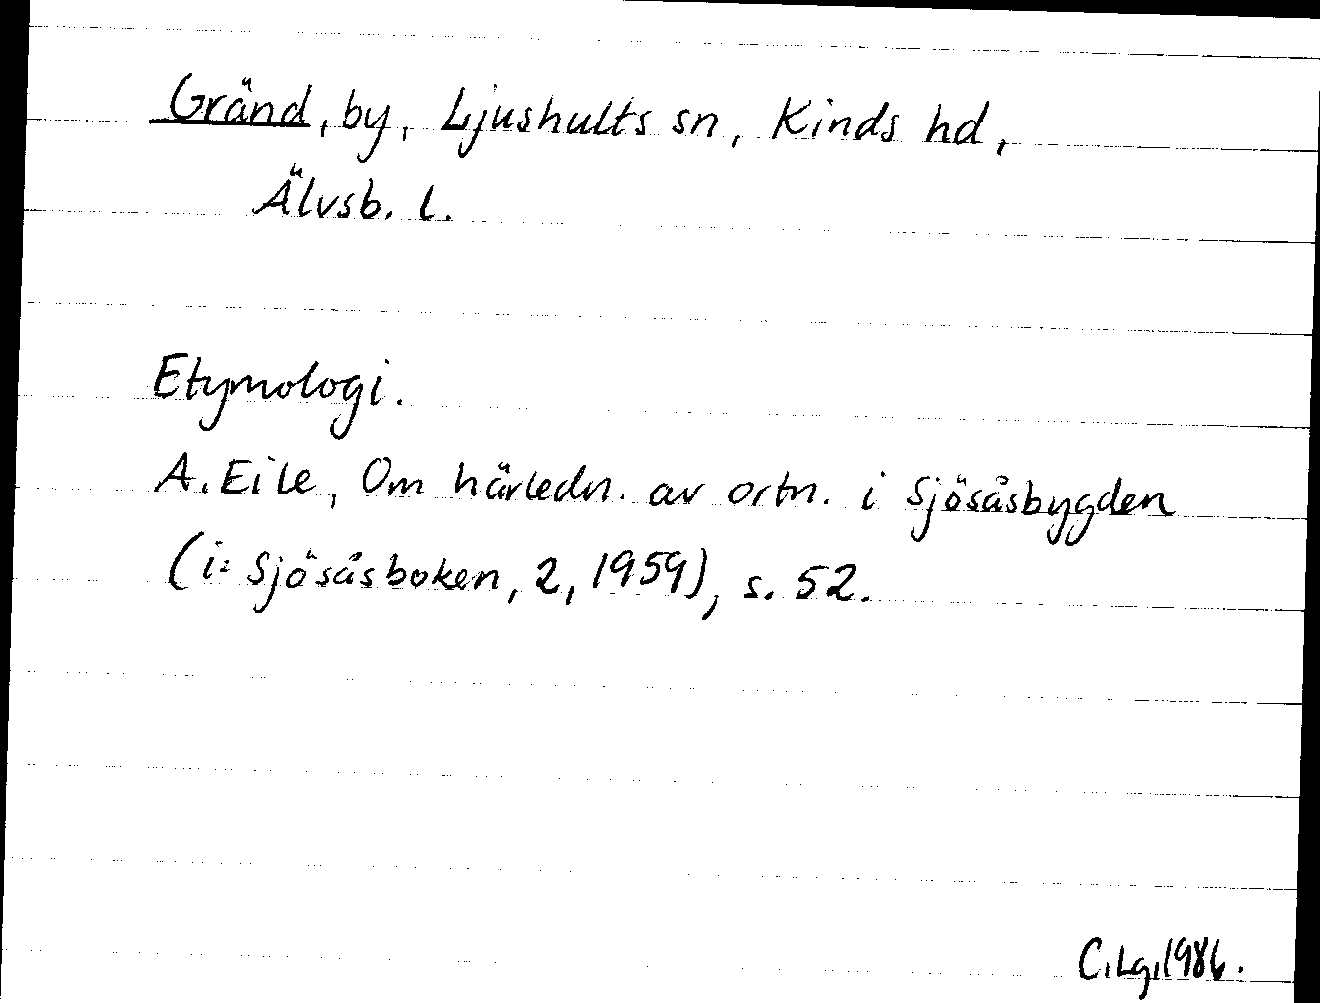 Gränd, by, Ljushults sn, Kinds hd,
Älvsb. l.
Etymologi.
A. Eile, Om härledn. av ortn. i Sjösåsbygden
(i: Sjösåsboken, 2, 1959), s. 52.
C.Lg.1986.